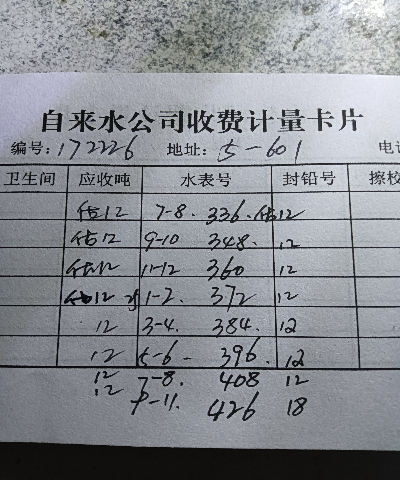 自来水公司收费计量卡片
编号:172226 地址:5-601 电
卫生间 应收吨 水表号 封铅号 擦校
估12 7-8. 336. 估12
估12 9-10 348. 12
估12 11-12 360 12
估12 1-2. 372 12
12 3-4. 384. 12
12 5-6- 396. 12
12 7-8. 408 12
12 9-11. 426 18